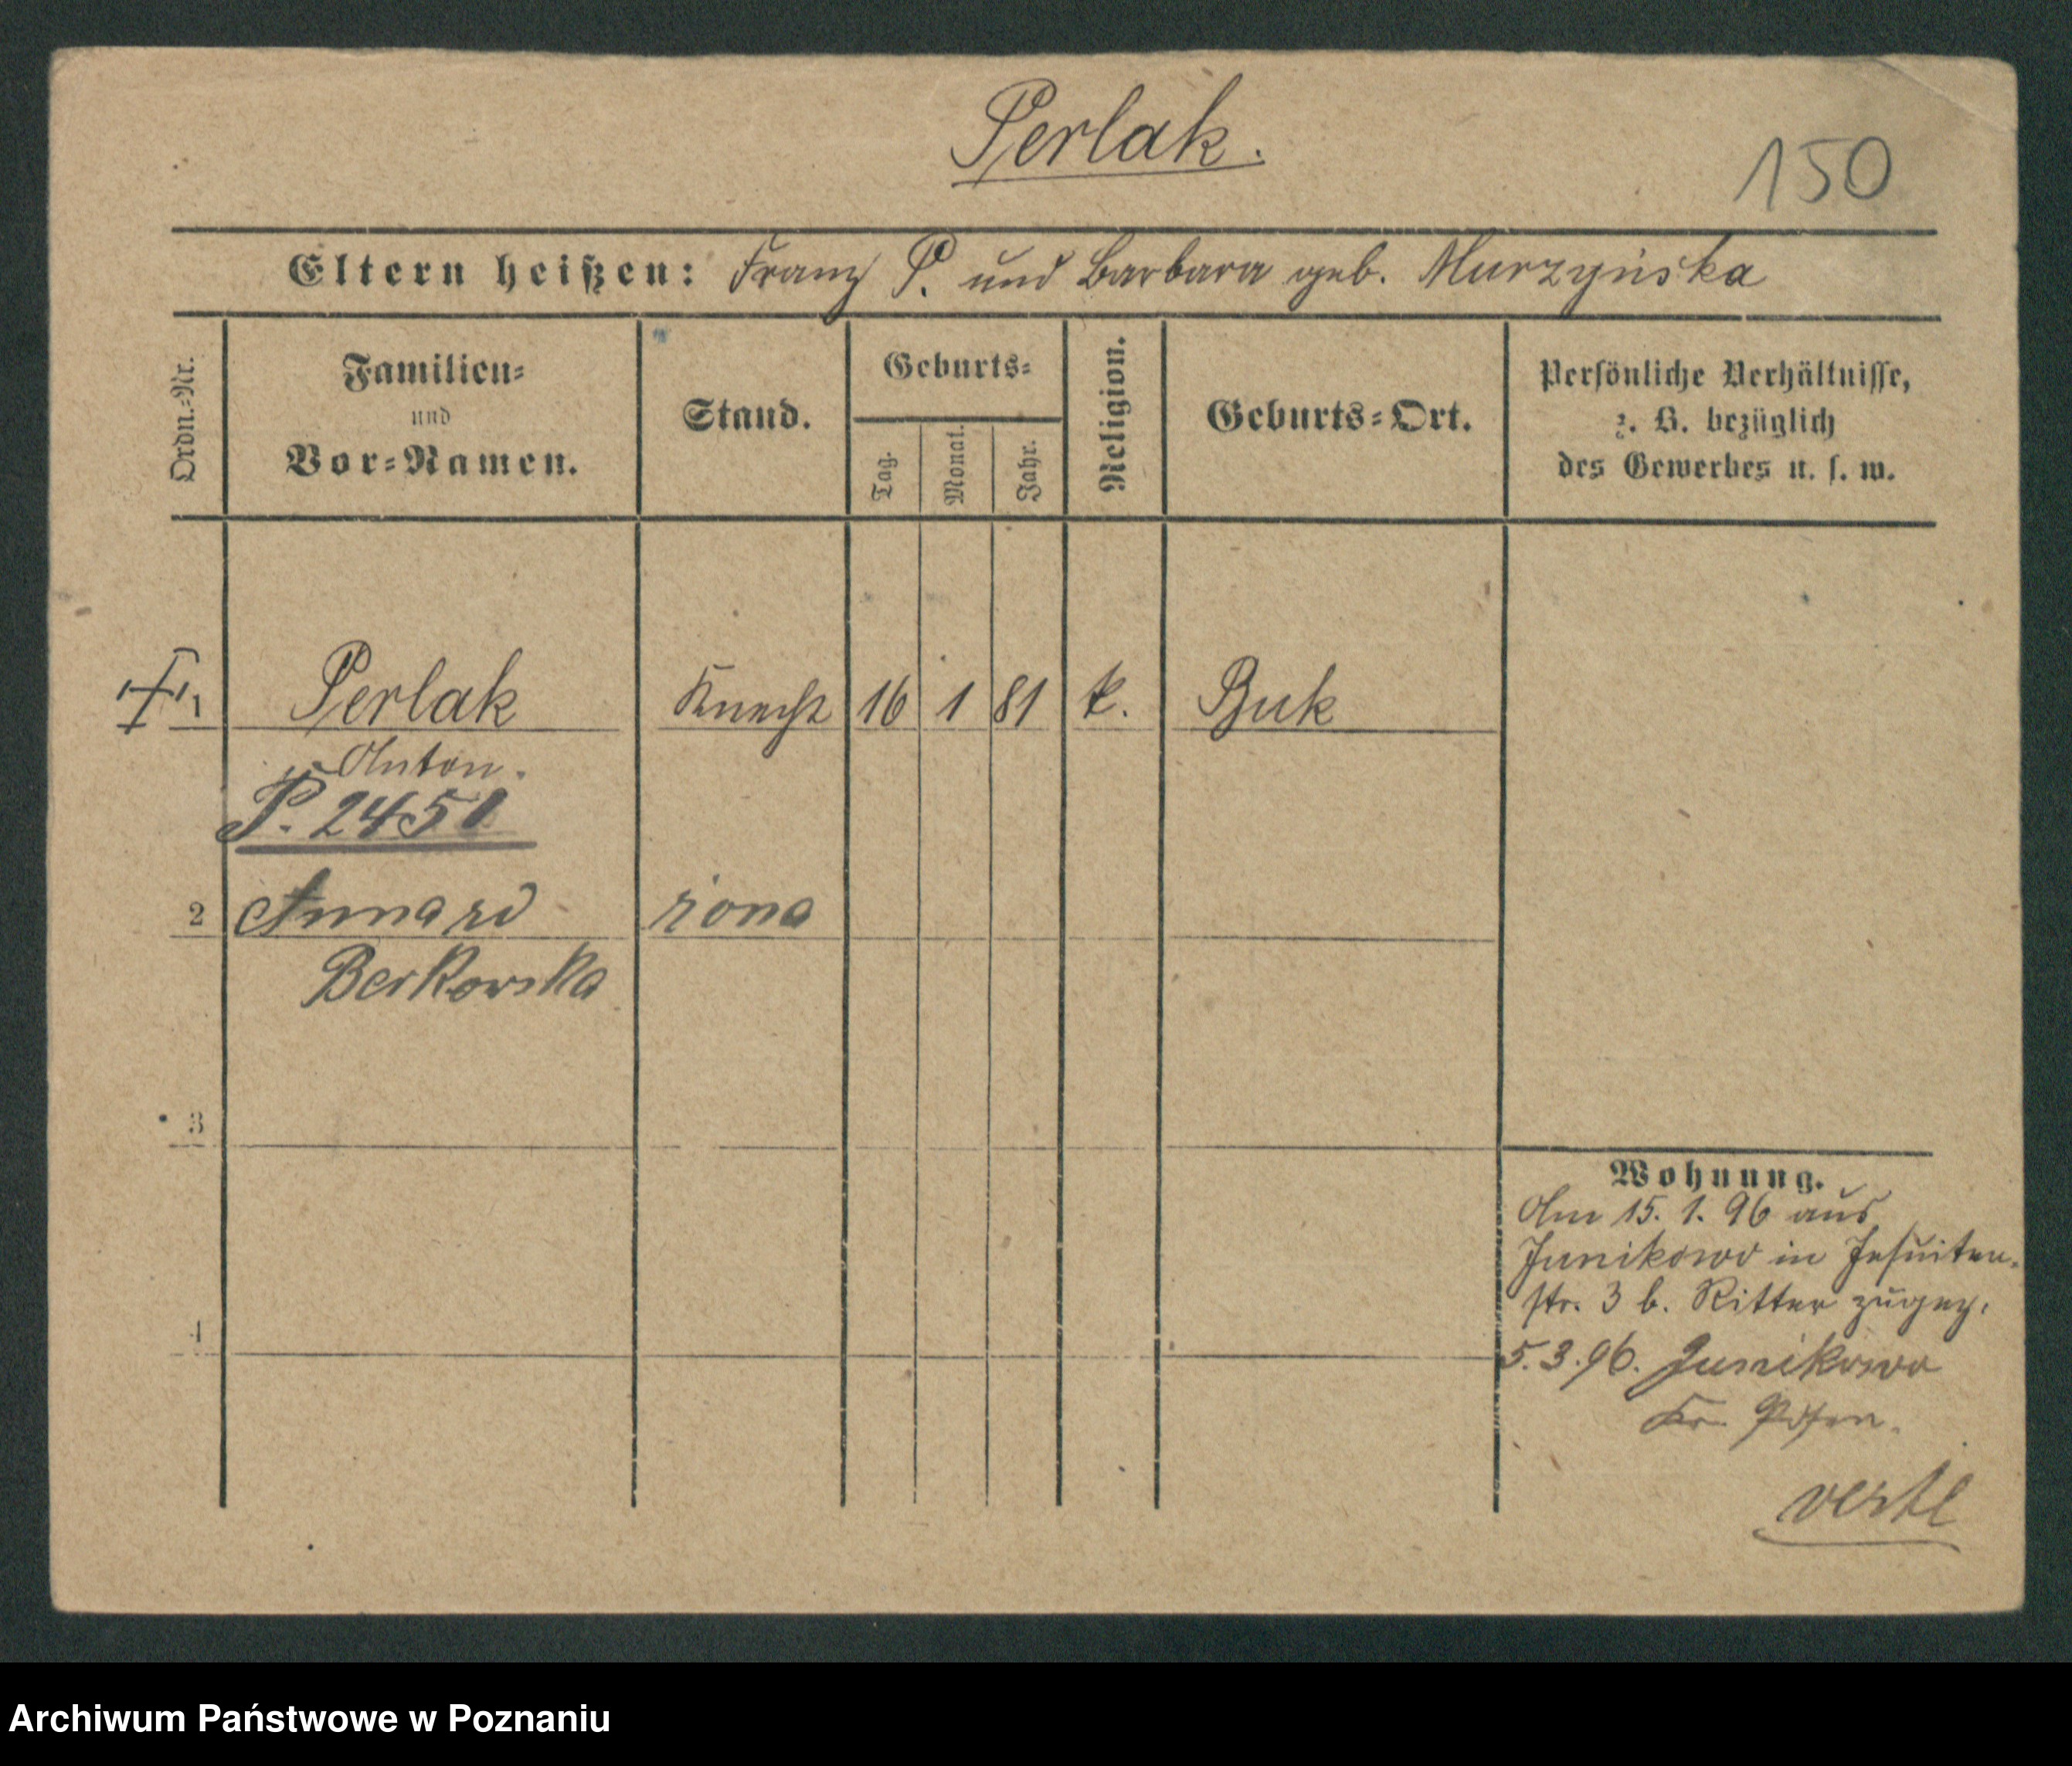 Perlak.
150
Eltern heißen: Franz P. und Barbara geb. Murzyńska
Ordn.-Nr.
Familien-
und
Vor-Namen.
Stand.
Geburts-
Tag.
Monat.
Jahr.
Religion.
Geburts-Ort.
Persönliche Verhältnisse,
z. B. bezüglich
des Gewerbes u. s. w.
1 Perlak Knecht 16 1 81 k. Buk
Anton.
P. 2451
2 żona
Berkowska
3
4
Wohnung.
Am 15. 1. 96 aus
Junikowo in Jesuiten-
str. 3 b. Ritter zugez.
5.3.96. Junikowo
Kr. Posen.
Archiwum Państwowe w Poznaniu